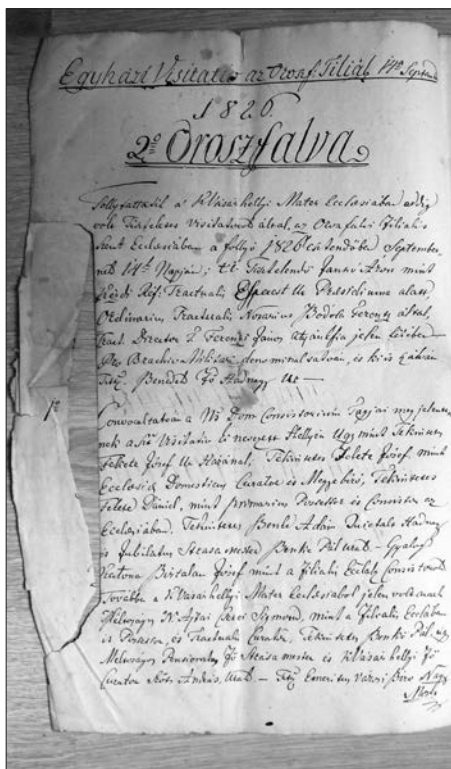 Egyházi Visitatio az Oroszf: Filiál 14a Septemb
1826.
2do Oroszfalva
Follytattatik a' K Vásárhellyi Mater Ecclesiában eddig
volt Tiszteletes Visitatorok által, az Oroszfalvi Filialis
Szent Ecclesiában a' follyó 1826 Esztendőben September-
nek 14k Napján; t.t. Tisztelendő Jantsó Áron mint
Kézdi Ref: Tractualis Esperest Ur Praesidiuma alatt,
Ordinarius Tractualis Notarius Bodola Ferentz által,
Tract. Director Ferenczi János Atyánkfia jelen létében
Pro Brachio militari denominálva,
Titt. Benedek Fő Hadnagy Ur —
1o
Convocaltatván a' Ns Dom Consistorium Tagjai megjelené-
nek a' Sz Visitatio ki nevezett Hellyén Ugy mint Tekintetes
Fekete Jósef Ur Házánál, Tekintetes Fekete Jósef mint
Ecclesia Domesticus Curator és Megyebiró, Tekintetes
Fekete Dániel, mint primarius Possessor és Consistor az
Ecclesiában. Tekintetes Benkő Ádám Hadnagy
és Jubilatus Strása mester Benkő Pál Urak — Gyalog
Katona Birtalan Jósef mint a' Filialis Ecclesia Consistora
Továbbá a' K Vásárhellyi Mater Ecclesiából jelen voltanak
Méltoságos Sigmond, mint a' Filialis Ecclában
is Possessor, és Tractualis Curator, Tekintetes Benkő Pál
Pensionatus Fő Strása mester és K Vásárhellyi Fő
Curator András, Urak. — Titt. Emeritus városi Biro Nagy